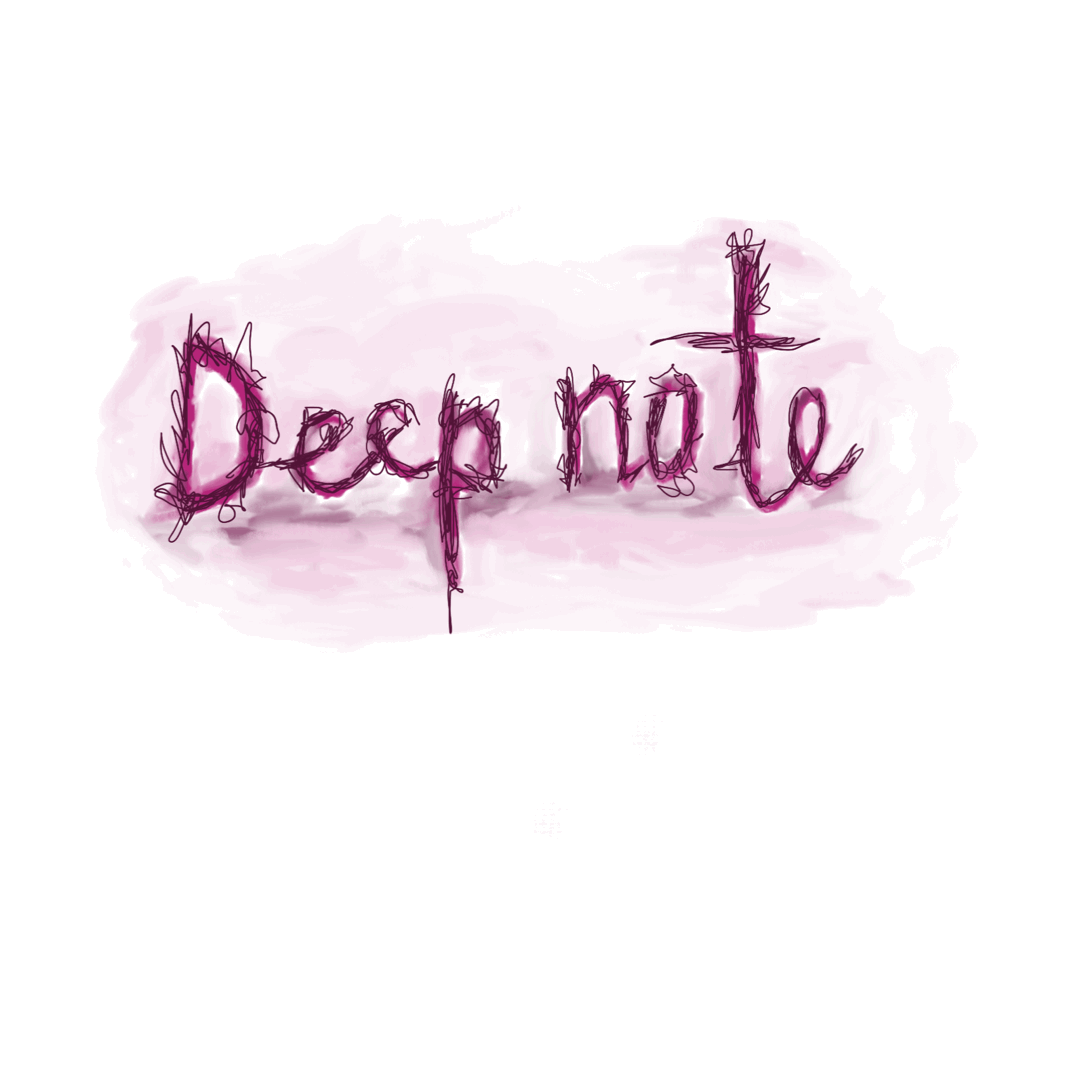 Deep note